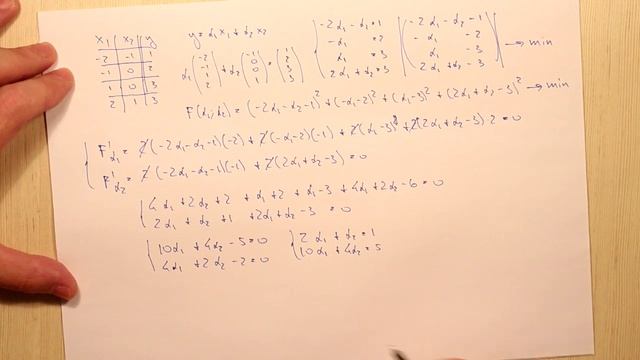 x₁ | x₂ | y
-2 | -1 | 1
-1 | 0 | 2
1 | 0 | 3
2 | 1 | 3
y = α₁x₁ + α₂x₂
α₁(-2 -1 1 2) + α₂(-1 0 0 1) = (1 2 3 3)
{ -2α₁ - α₂ = 1
-α₁ = 2
α₁ = 3
2α₁ + α₂ = 3
| ( -2α₁ - α₂ - 1
-α₁ - 2
α₁ - 3
2α₁ + α₂ - 3 ) | → min
F(α₁, α₂) = (-2α₁ - α₂ - 1)² + (-α₁ - 2)² + (α₁ - 3)² + (2α₁ + α₂ - 3)² → min
F'α₁ = 2(-2α₁ - α₂ - 1)(-2) + 2(-α₁ - 2)(-1) + 2(α₁ - 3) + 2(2α₁ + α₂ - 3)·2 = 0
F'α₂ = 2(-2α₁ - α₂ - 1)(-1) + 2(2α₁ + α₂ - 3) = 0
{ 4α₁ + 2α₂ + 2 + α₁ + 2 + α₁ - 3 + 4α₁ + 2α₂ - 6 = 0
2α₁ + α₂ + 1 + 2α₁ + α₂ - 3 = 0
{ 10α₁ + 4α₂ - 5 = 0
4α₁ + 2α₂ - 2 = 0
{ 2α₁ + α₂ = 1
10α₁ + 4α₂ = 5